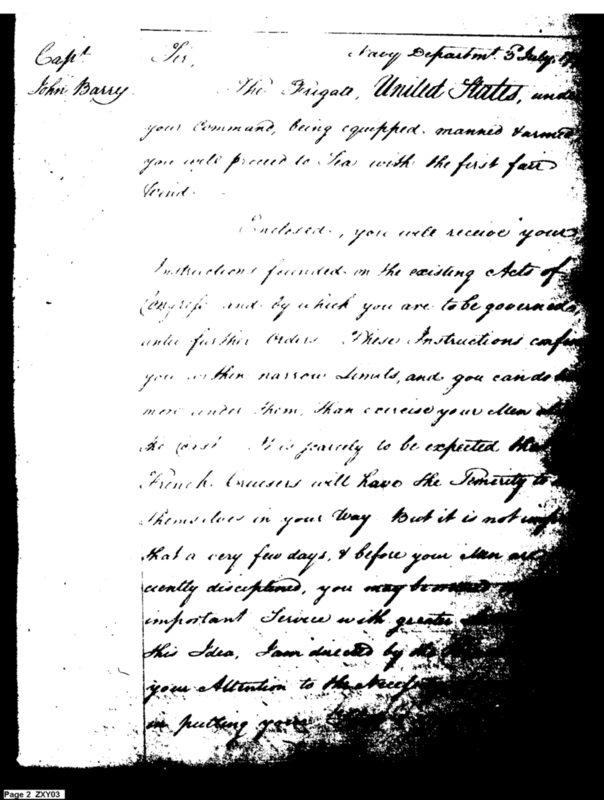 Capt.
John Barry
Sir, Navy Departmt. 3 July
The Frigate, United States, unde
your Command, being equipped, manned & armed
you will proceed to Sea with the first fair
Wind.
Enclosed, you will receive your
Instructions founded on the existing Acts of
Congress and by which you are to be governed,
until further Orders. These Instructions confin
you within narrow Limits, and you can do
more under them, than exercise your Men
the Coast. It is scarcely to be expected tha
French Cruisers will have the Temerity to
themselves in your Way But it is not imp
that a very few days, & before your Men are
ciently disciplined, you may be
important Service with greater
this Idea, I am directed by the
your Attention to the
in putting your
Page 2 ZXY03